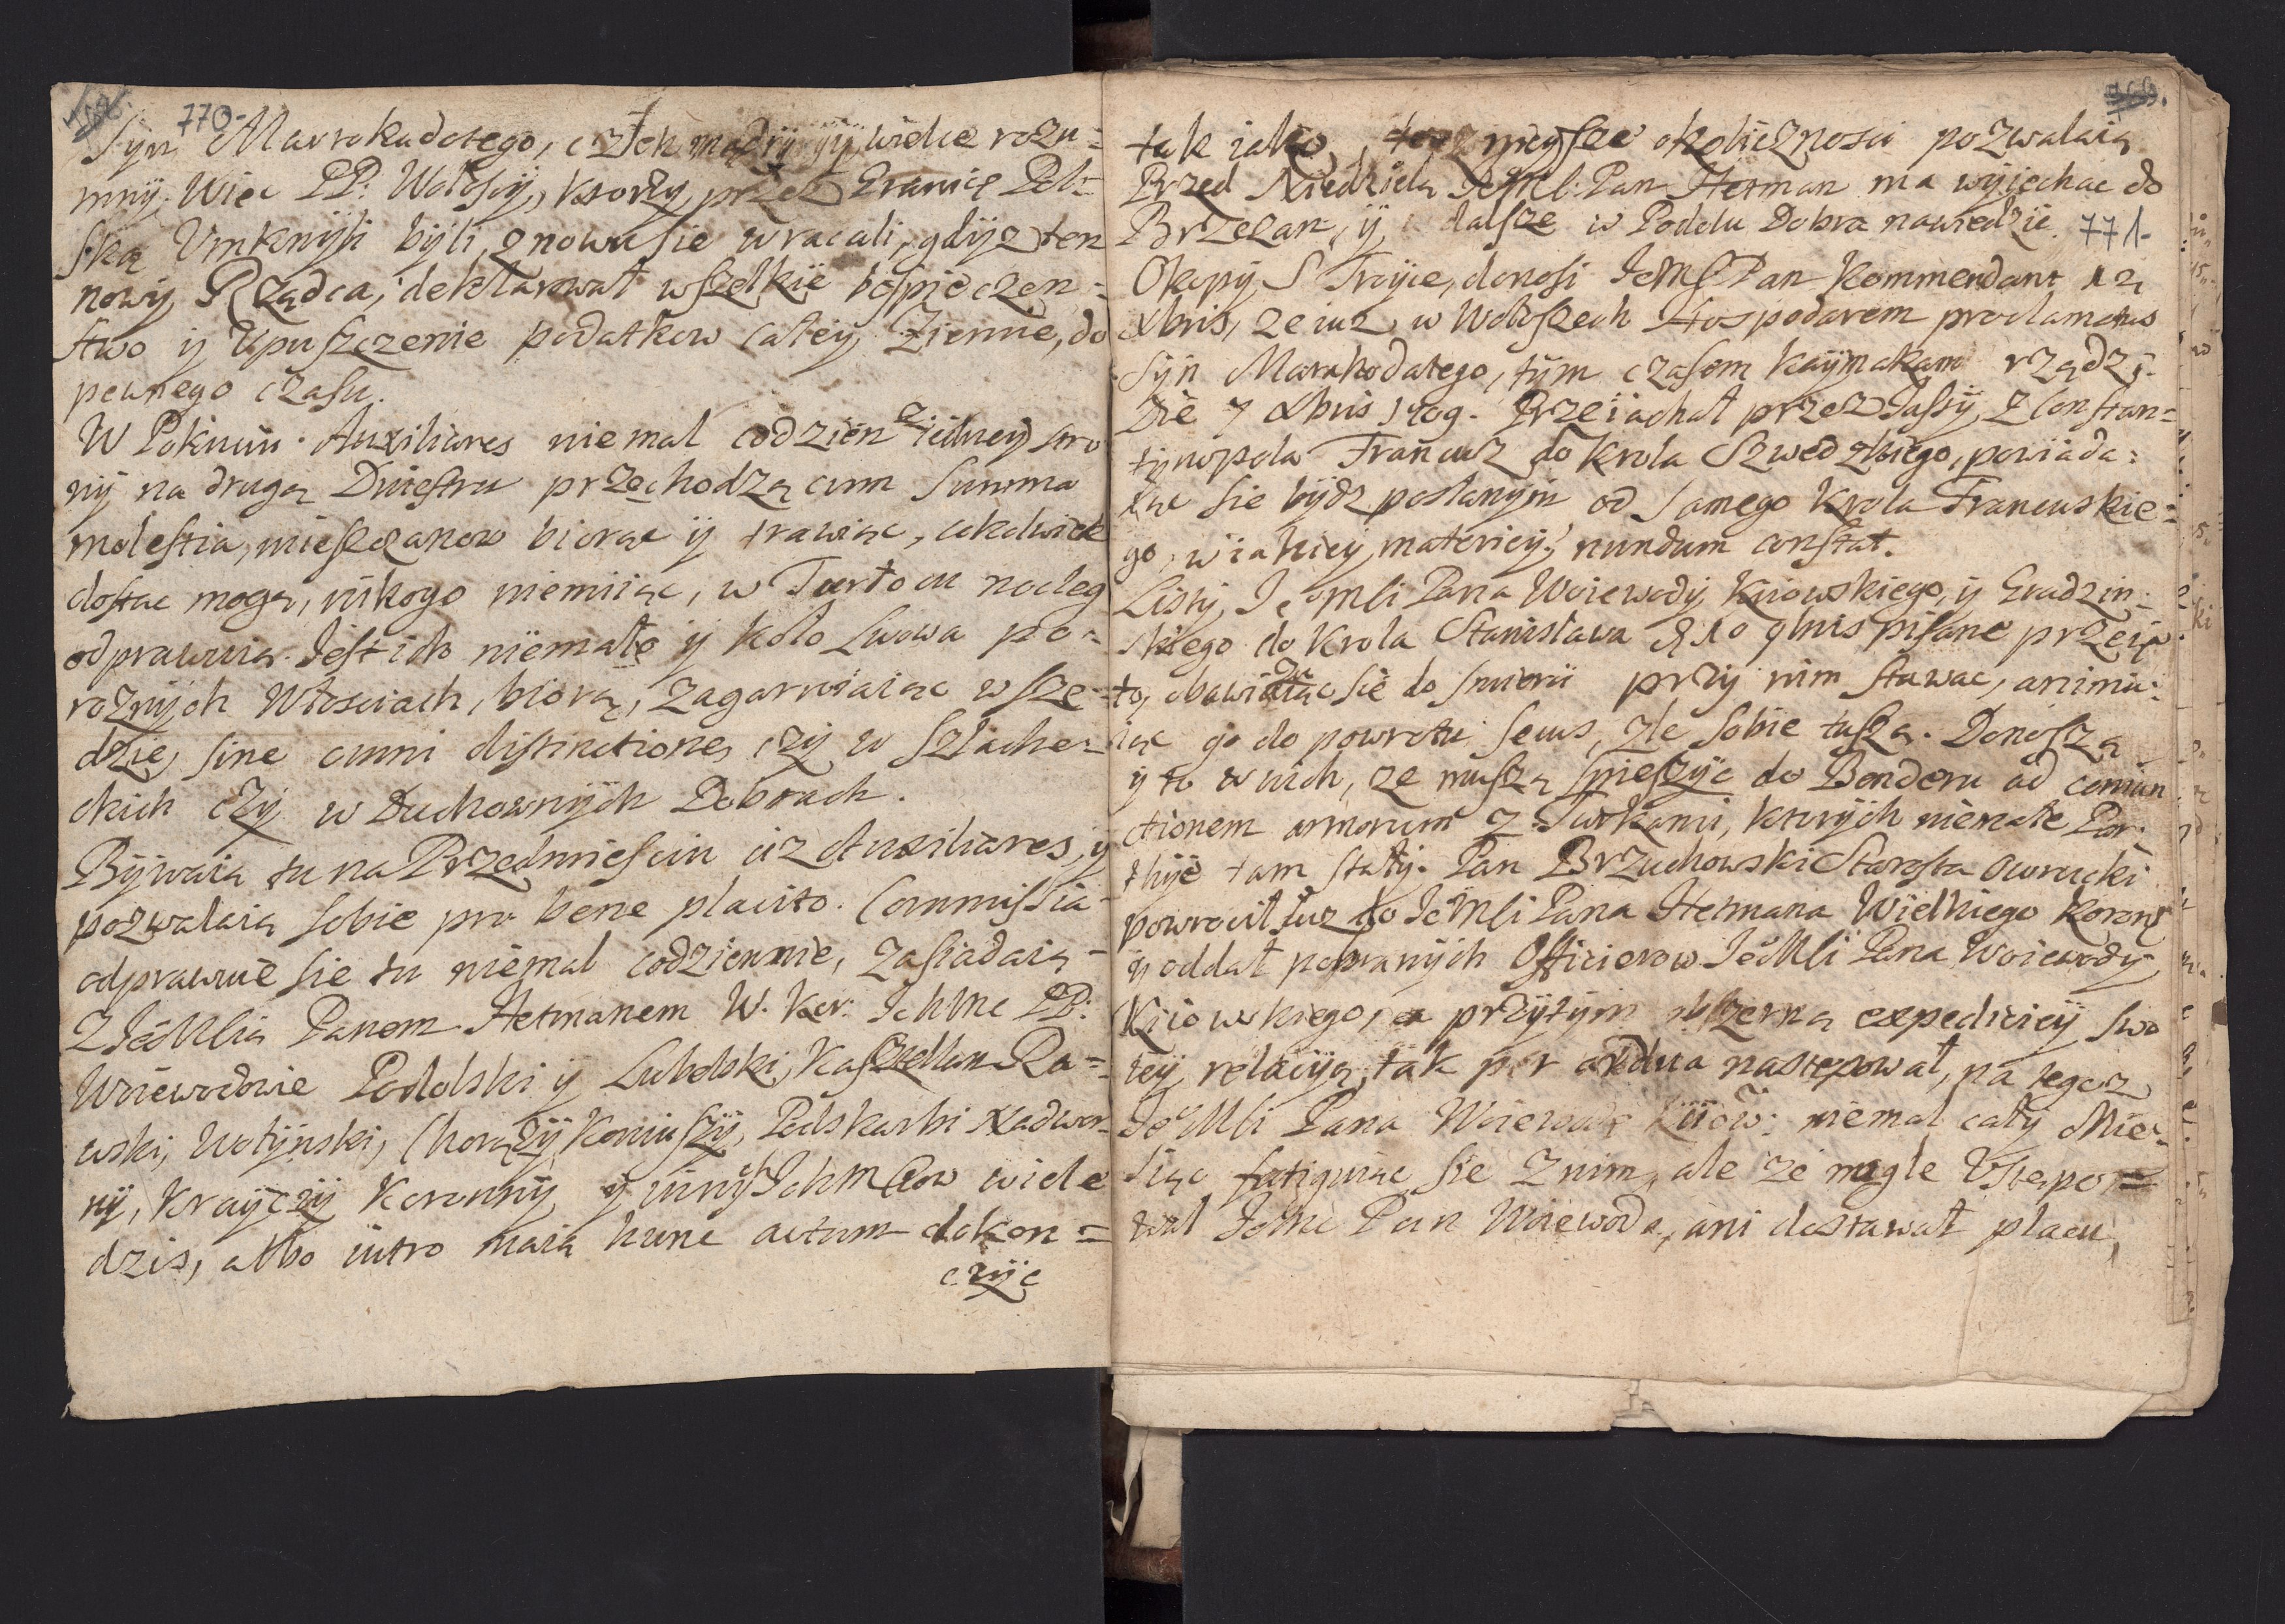 770
Syn Mavrokadotego, człek mądry y wielce rozu=
mny, Więc PP: Wołoszy, ktorzy przez Granicę Pol=
ską Vmknyli byli, znowu sie wracali, gdyz ten
nowy Rządca, deklarował wszelkie bespieczen=
stwo y Vpuszczenie podatkow całey Ziemie, do
pewnego czasu.
W Pokuciu Auxiliares niemal codzien z iedney stro
ny na drugą Dniestru przechodzą cum summa
molestia, mieszczanow biorąc y trawiąc, cokolwiek
dostac mogą, nikogo niemiiąc, w Turłociu nocleg
odprawuią. Jest ich niemało y koło Lwowa po=
roznych Włosciach, biorą, zagarniaiąc wszę=
dzie, sine omni distinctione, czy w Szlache=
ckich czy w Duchownych Dobrach.
Bywaią tu na Przedmiesciu ciz Auxiliares, y
pozwalaią sobie pro bene placito. Commissia
odprawuie sie tu niemal codziennie, zasiadaią
z JeMścią Panem Hetmanem W. Kor: Ichmc PP:
Woiewodowie Podolski y Lubelski, Kasztellan Ra=
wski, Wołynski, Chorąży, Koniuszy, Podskarbi Nadwor
ny, Krayczy Koronny, y innych Ichmściow wiele
dzis, albo iutro maią hunc actum dokon=
czyc
tak iako, terznieysze okolicznosci pozwalaią
Przed Niedzielą JeMść Pan Hetman ma wyiechac do
Brzezan, y dalsze w Podolu Dobra nawiedzic. 771
Okopy S Troyce, donosi JeMść Pan Kommendant 12
Xbris, ze iuz w Wołoszech Hospodarem proclamatus
Syn Mavrkodatego, tym czasem kaymakam rządzi.
Die 7 Xbris 1709. Przeiachał przez Jassy, z Constan=
tynopola Francuz do Krola Szwedzkiego, powiada=
iąc sie bydz posłanym od samego Krola Francuskie=
go, w iakiey materiey, nundum constat.
Listy, JeoMści Pana Woiewody Kiiowskiego, y Grudzin=
skiego do Krola Stanisława 10 9bris pisane przeię
to, obowiązuiąc sie do smierci przy nim stawac, animu=
iąc go do powrotu secus, zle sobie tuszą. Donoszą
y to w nich, ze muszą spieszyc do Benderu ad coniun
ctionem armorum z Turkami, ktorych niemałe Par=
thye tam stały. Pan Brzuchowski Starosta Owrucki
powrocił iuz do JeMści Pana Hetmana Wielkiego Koron
y oddał pobranych Officierow JeoMści Pana Woiewody
Kiiowskiego, a przytym obszerną expediciey swo
iey relacyą, tak per ardua nastepował, na tegoz
JeoMści Pana Woiewodę Kiiow: niemal cały Mie=
siąc fatiguiąc sie z nim, ale ze nagle Vstępo=
wał Jemc Pan Woiewoda, ani dostawał placu,